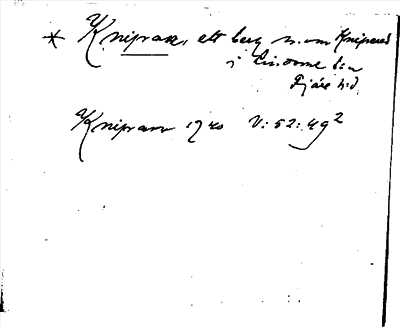 * Knipran, ett berg n. om Knipered
i Lindome sn
Fjäre hd.
Knipran 1740 V: 52: 49²